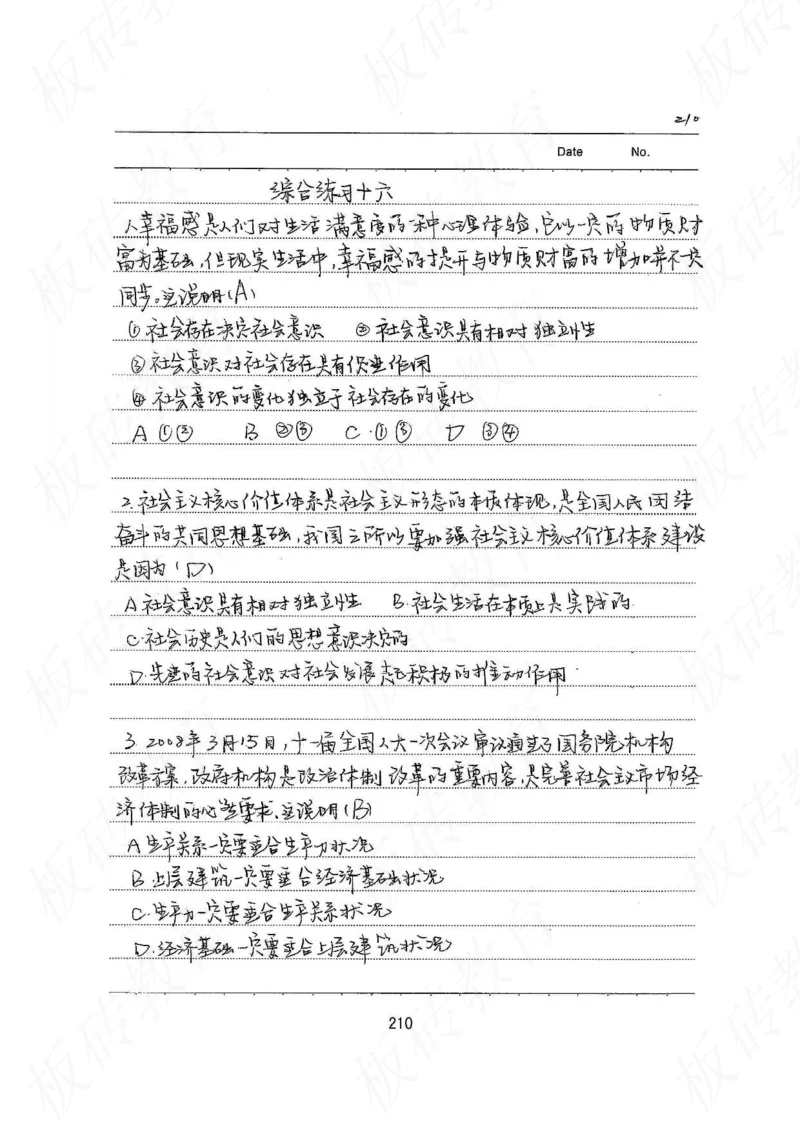 210
Date No.
综合练习十六
1.幸福感是人们对生活满意度的一种心理体验,它以一定的物质财
富为基础,但现实生活中,幸福感的提升与物质财富的增加并不一定
同步。这说明(A)
①社会存在决定社会意识 ②社会意识具有相对独立性
③社会意识对社会存在具有促进作用
④社会意识的变化独立于社会存在的变化
A ①② B ②③ C.①③ D ③④
2.社会主义核心价值体系是社会主义形态的本质体现,是全国人民团结
奋斗的共同思想基础,我国之所以要加强社会主义核心价值体系建设
是因为(D)
A 社会意识具有相对独立性 B.社会生活在本质上是实践的
C.社会历史是人们的思想意识决定的
D.先进的社会意识对社会发展起积极的推动作用
3. 2008年3月15日,十一届全国人大一次会议审议通过了国务院机构
改革方案,政府机构是政治体制改革的重要内容,是完善社会主义市场经
济体制的必然要求.这说明(B)
A 生产关系一定要适合生产力状况
B 上层建筑一定要适合经济基础状况
C.生产力一定要适合生产关系状况
D.经济基础一定要适合上层建筑状况
210
板砖教育